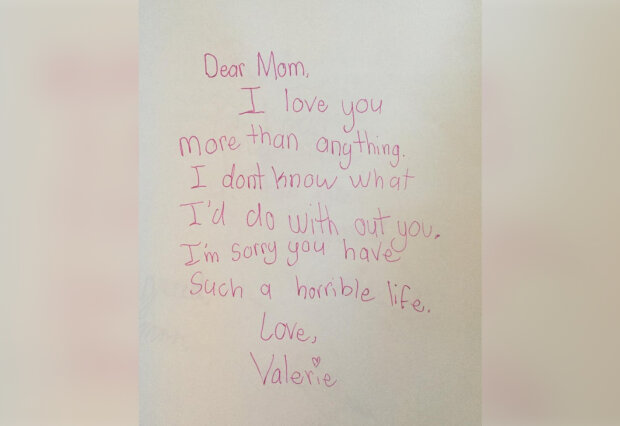 Dear Mom,
I love you
more than anything.
I dont know what
I'd do with out you.
I'm sorry you have
Such a horrible life.
Love,
Valerie